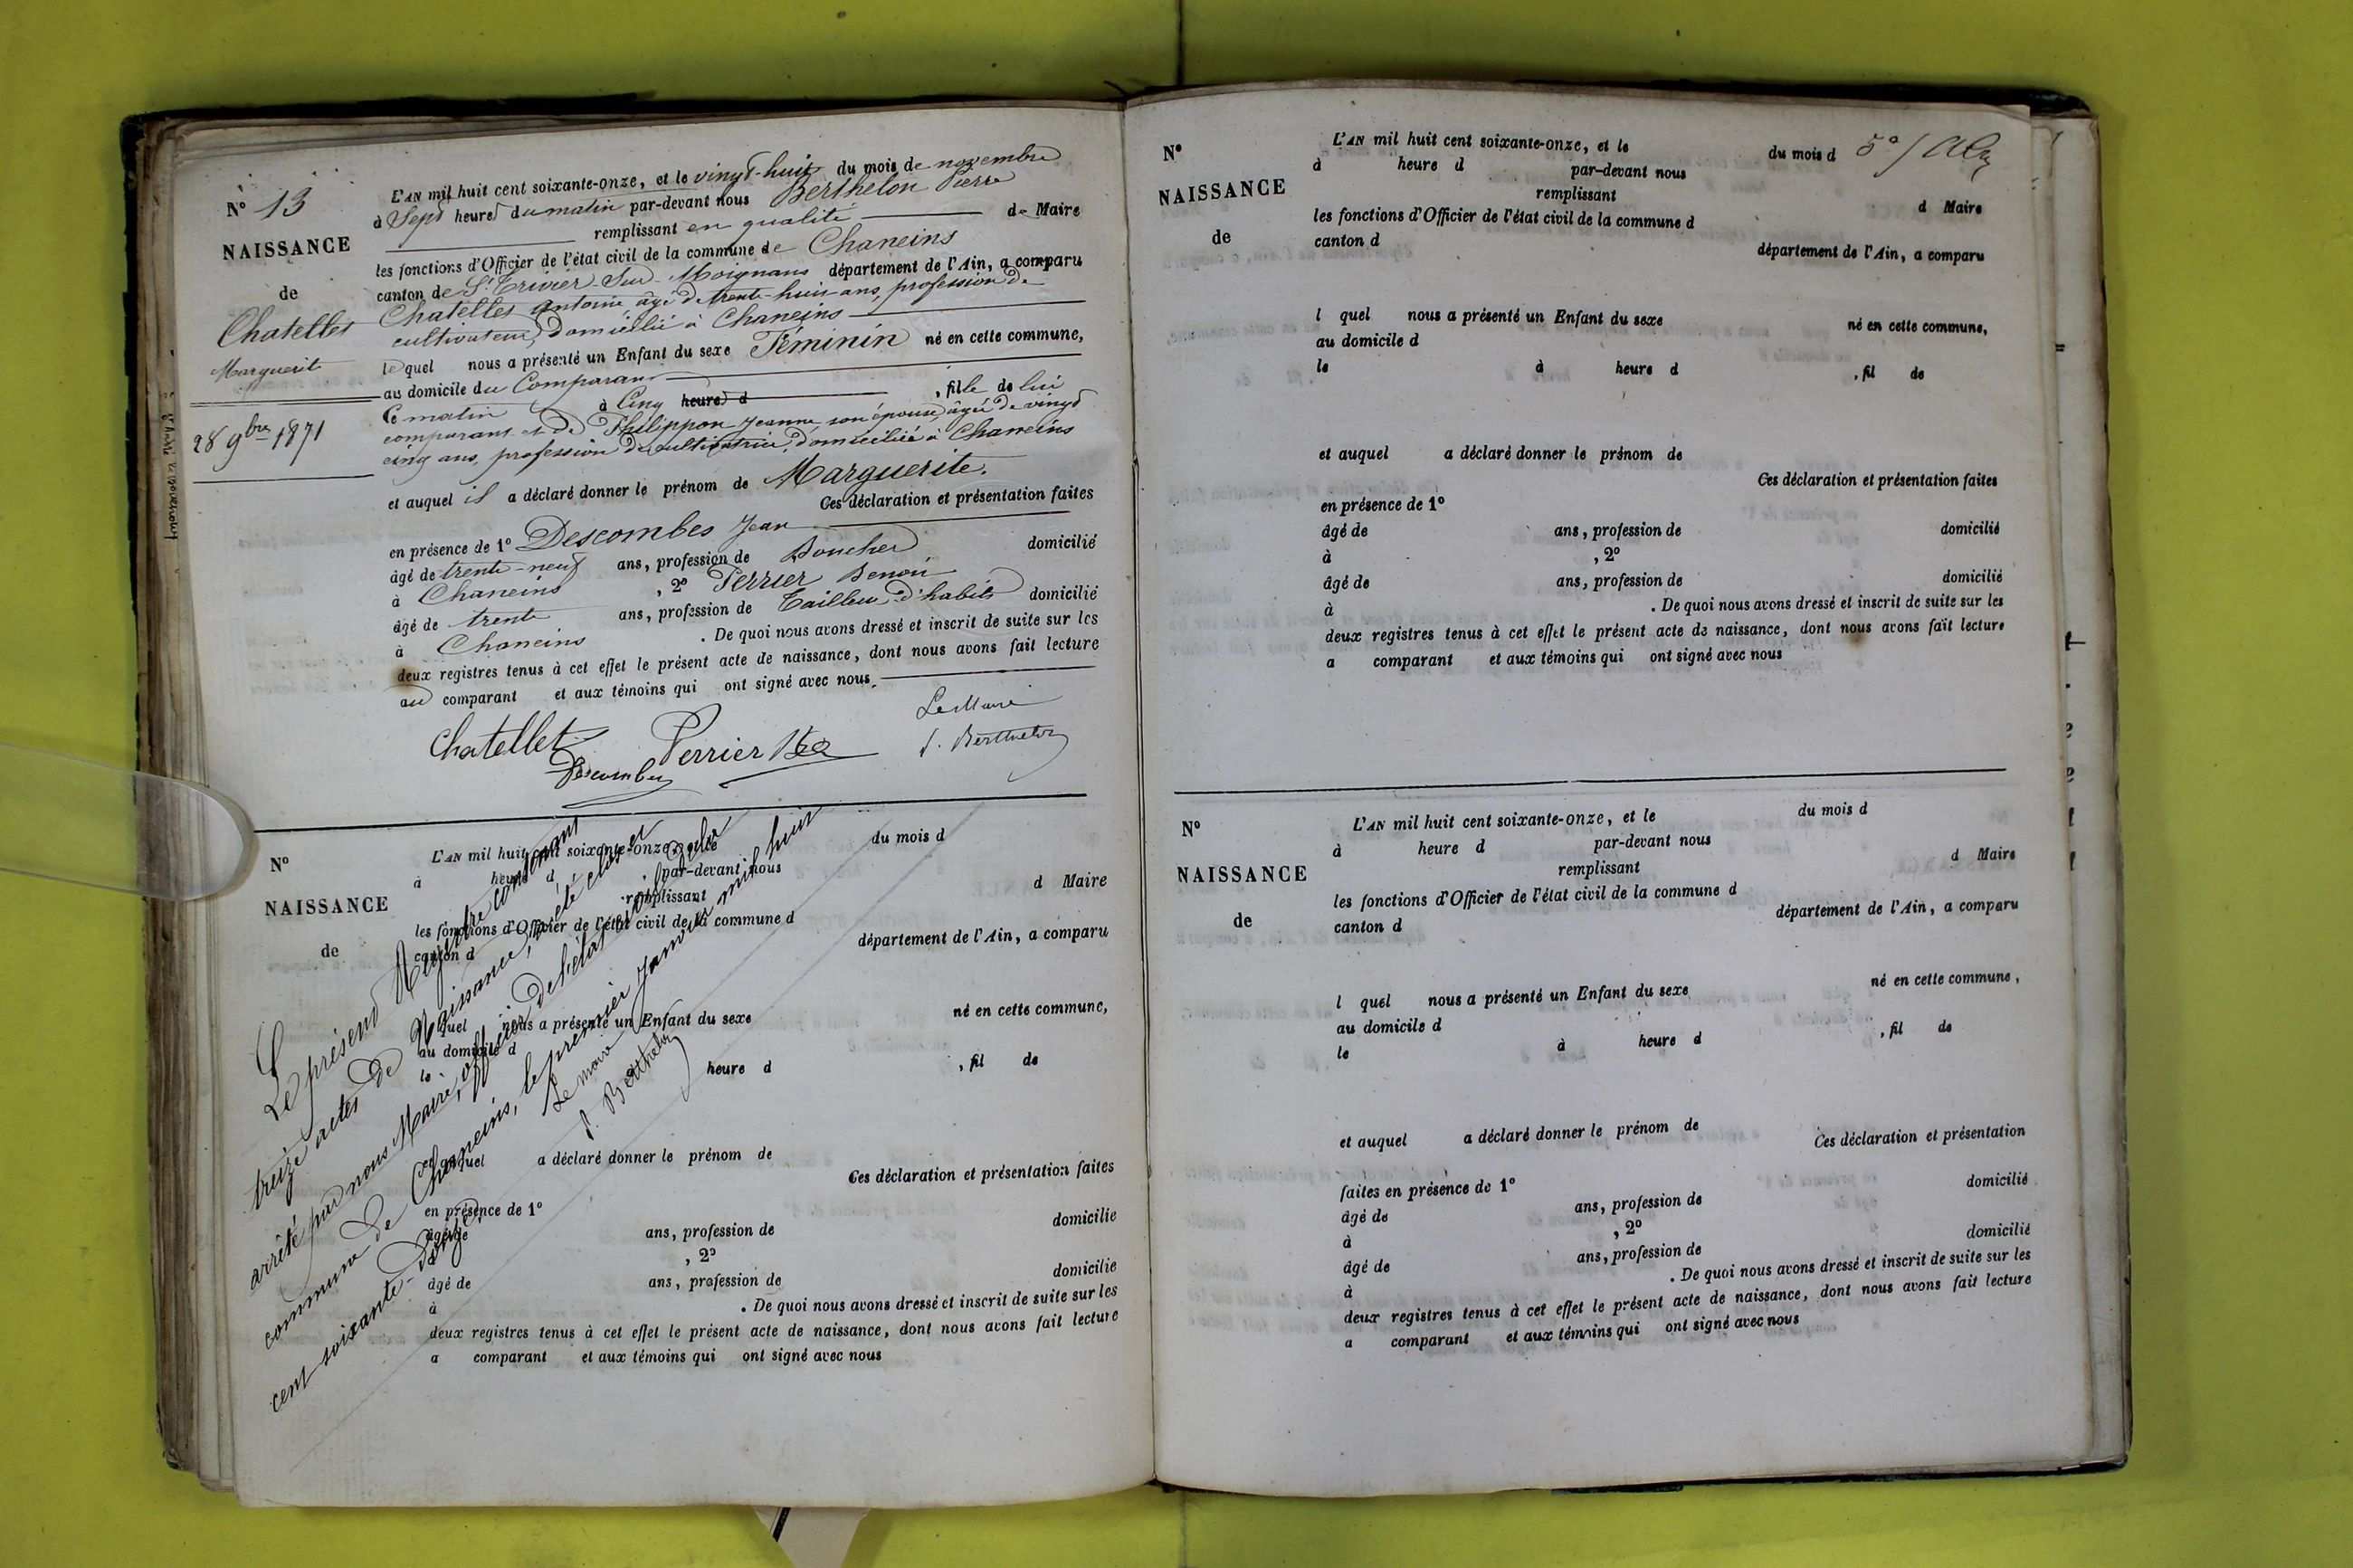 N° 13
NAISSANCE
de
Chatellet
Marguerit
28 9bre 1871
L'AN mil huit cent soixante-onze, et le vingt-huit du mois de novembre
à Sept heures du matin par-devant nous Berthelon Pierre
remplissant en qualité de Maire
les fonctions d'Officier de l'état civil de la commune de Chaneins
canton de St Trivier-Sur-Moignans département de l'Ain, a comparu
Chatellet Antoine âgé de trente-huit ans, profession de
cultivateur, domicilié à Chaneins
lequel nous a présenté un Enfant du sexe Féminin né en cette commune,
au domicile du Comparant
Ce matin à Cinq heures d , fille de lui
comparant et de Philippon Jeanne son épouse, âgée de vingt
cinq ans, profession de cultivatrice, domiciliée à Chaneins
et auquel il a déclaré donner le prénom de Marguerite.
Ces déclaration et présentation faites
en présence de 1° Descombes Jean
âgé de trente-neuf ans, profession de Boucher domicilié
à Chaneins , 2° Perrier Benoit
âgé de trente ans, profession de Tailleur d'habits domicilié
à Chaneins . De quoi nous avons dressé et inscrit de suite sur les
deux registres tenus à cet effet le présent acte de naissance, dont nous avons fait lecture
au comparant et aux témoins qui ont signé avec nous.
Chatellet Perrier Le Maire
Descombes P. Berthelon
N°
NAISSANCE
de
L'AN mil huit cent soixante-onze, et le du mois d
à heure d par-devant nous
remplissant d Maire
les fonctions d'Officier de l'état civil de la commune d
canton d département de l'Ain, a comparu
l quel nous a présenté un Enfant du sexe né en cette commune,
au domicile d
le heure d , fil de
et auquel a déclaré donner le prénom de
Ces déclaration et présentation faites
en présence de 1°
âgé de ans, profession de domicilié
à , 2°
âgé de ans, profession de domicilié
à . De quoi nous avons dressé et inscrit de suite sur les
deux registres tenus à cet effet le présent acte de naissance, dont nous avons fait lecture
a comparant et aux témoins qui ont signé avec nous
Le présent Registre contenant
treize actes de Naissance, a été clos et
arrêté par nous Maire, officier de l'état civil de la
commune de Chaneins, le premier Janvier mil huit
cent soixante-douze.
Le maire
P. Berthelon
5e/
N°
NAISSANCE
de
L'AN mil huit cent soixante-onze, et le du mois d
à heure d par-devant nous
remplissant d Maire
les fonctions d'Officier de l'état civil de la commune d
canton d département de l'Ain, a comparu
l quel nous a présenté un Enfant du sexe né en cette commune,
au domicile d
le à heure d , fil de
et auquel a déclaré donner le prénom de
Ces déclaration et présentation faites
en présence de 1°
âgé de ans, profession de domicilié
à , 2°
âgé de ans, profession de domicilié
à . De quoi nous avons dressé et inscrit de suite sur les
deux registres tenus à cet effet le présent acte de naissance, dont nous avons fait lecture
a comparant et aux témoins qui ont signé avec nous
N°
NAISSANCE
de
L'AN mil huit cent soixante-onze, et le du mois d
à heure d par-devant nous
remplissant d Maire
les fonctions d'Officier de l'état civil de la commune d
canton d département de l'Ain, a comparu
l quel nous a présenté un Enfant du sexe né en cette commune,
au domicile d
le à heure d , fil de
et auquel a déclaré donner le prénom de
Ces déclaration et présentation
faites en présence de 1°
âgé de ans, profession de domicilié
à , 2°
âgé de ans, profession de domicilié
à . De quoi nous avons dressé et inscrit de suite sur les
deux registres tenus à cet effet le présent acte de naissance, dont nous avons fait lecture
a comparant et aux témoins qui ont signé avec nous